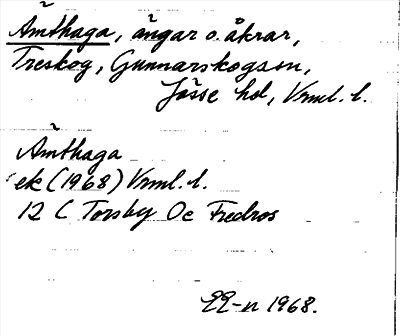 Ämthaga, ängar o. åkrar,
Treskog, Gunnarskogssn,
Jösse hd, Vrml. l.
Ämthaga
ek (1968) Vrml. l.
12 C Torsby Oc Fredros
EE-n 1968.